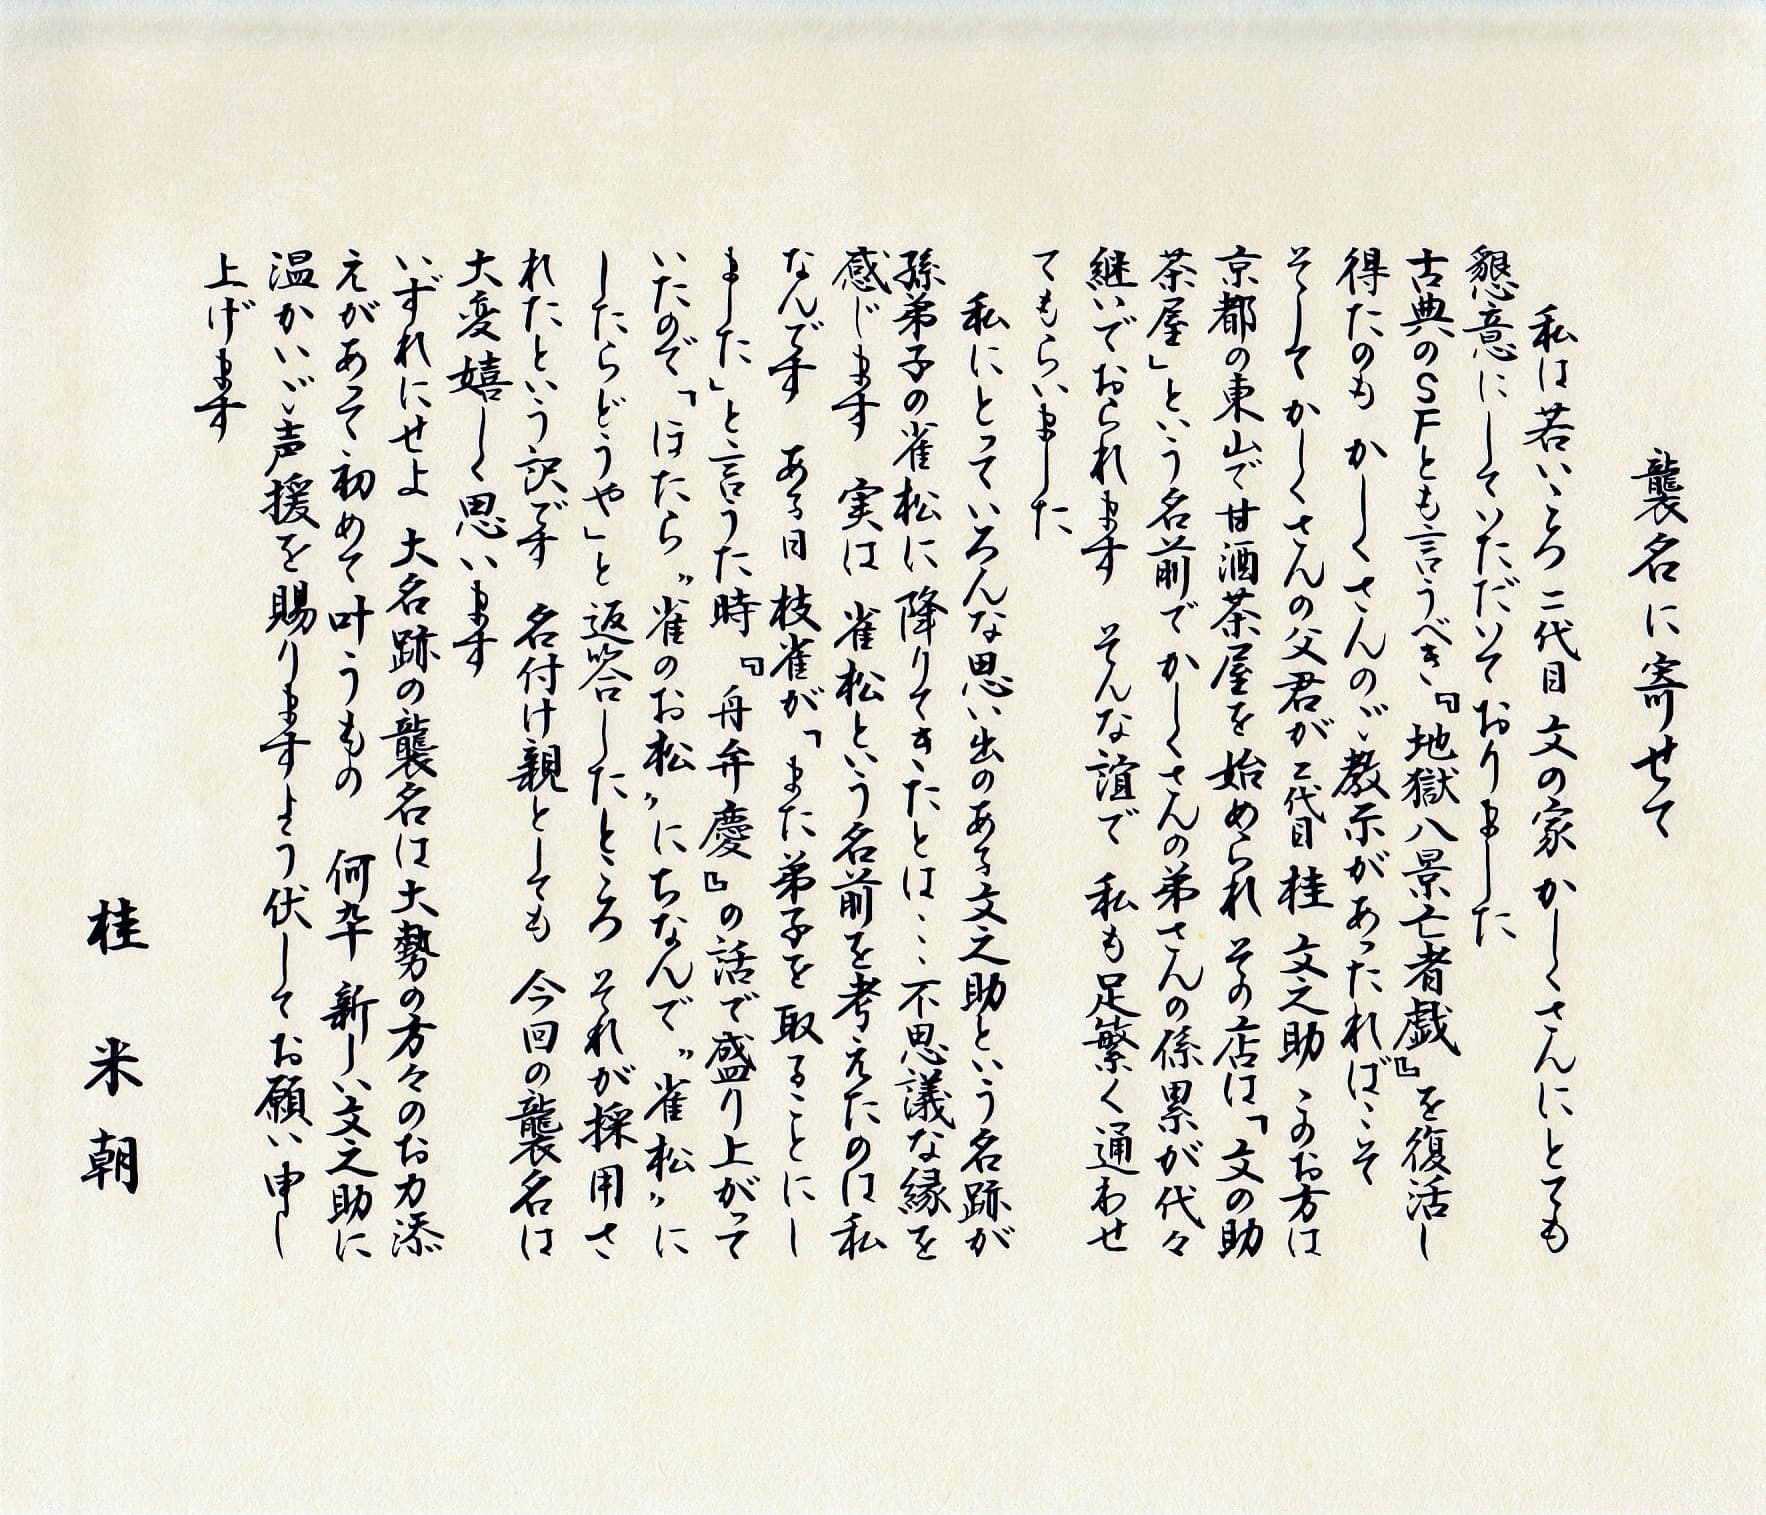 襲名に寄せて
私は若いころ 二代目 文の家かしくさんにとても
懇意にしていただいておりました
古典のSFとも言うべき『地獄八景亡者戯』を復活し
得たのも かしくさんのご教示があったればこそ
そしてかしくさんの父君が 二代目 桂 文之助 このお方は
京都の東山で甘酒茶屋を始められ その店は「文の助
茶屋」という名前でかしくさんの弟さんの係累が代々
継いでおられます そんな誼で 私も足繁く通わせ
てもらいました
私にとっていろんな思い出のある文之助という名跡が
孫弟子の雀松に降りてきたとは…不思議な縁を
感じます 実は 雀松という名前を考えたのは私
なんです ある日 枝雀が「また弟子を取ることにし
ました」と言うた時『舟弁慶』の話で盛り上がって
いたので「ほたら〝雀のお松〟にちなんで〝雀松〟に
したらどうや」と返答したところ それが採用さ
れたという訳です 名付け親としても 今回の襲名は
大変嬉しく思います
いずれにせよ 大名跡の襲名は大勢の方々のお力添
えがあって初めて叶うもの 何卒 新しい文之助に
温かいご声援を賜りますよう伏してお願い申し
上げます
桂 米朝